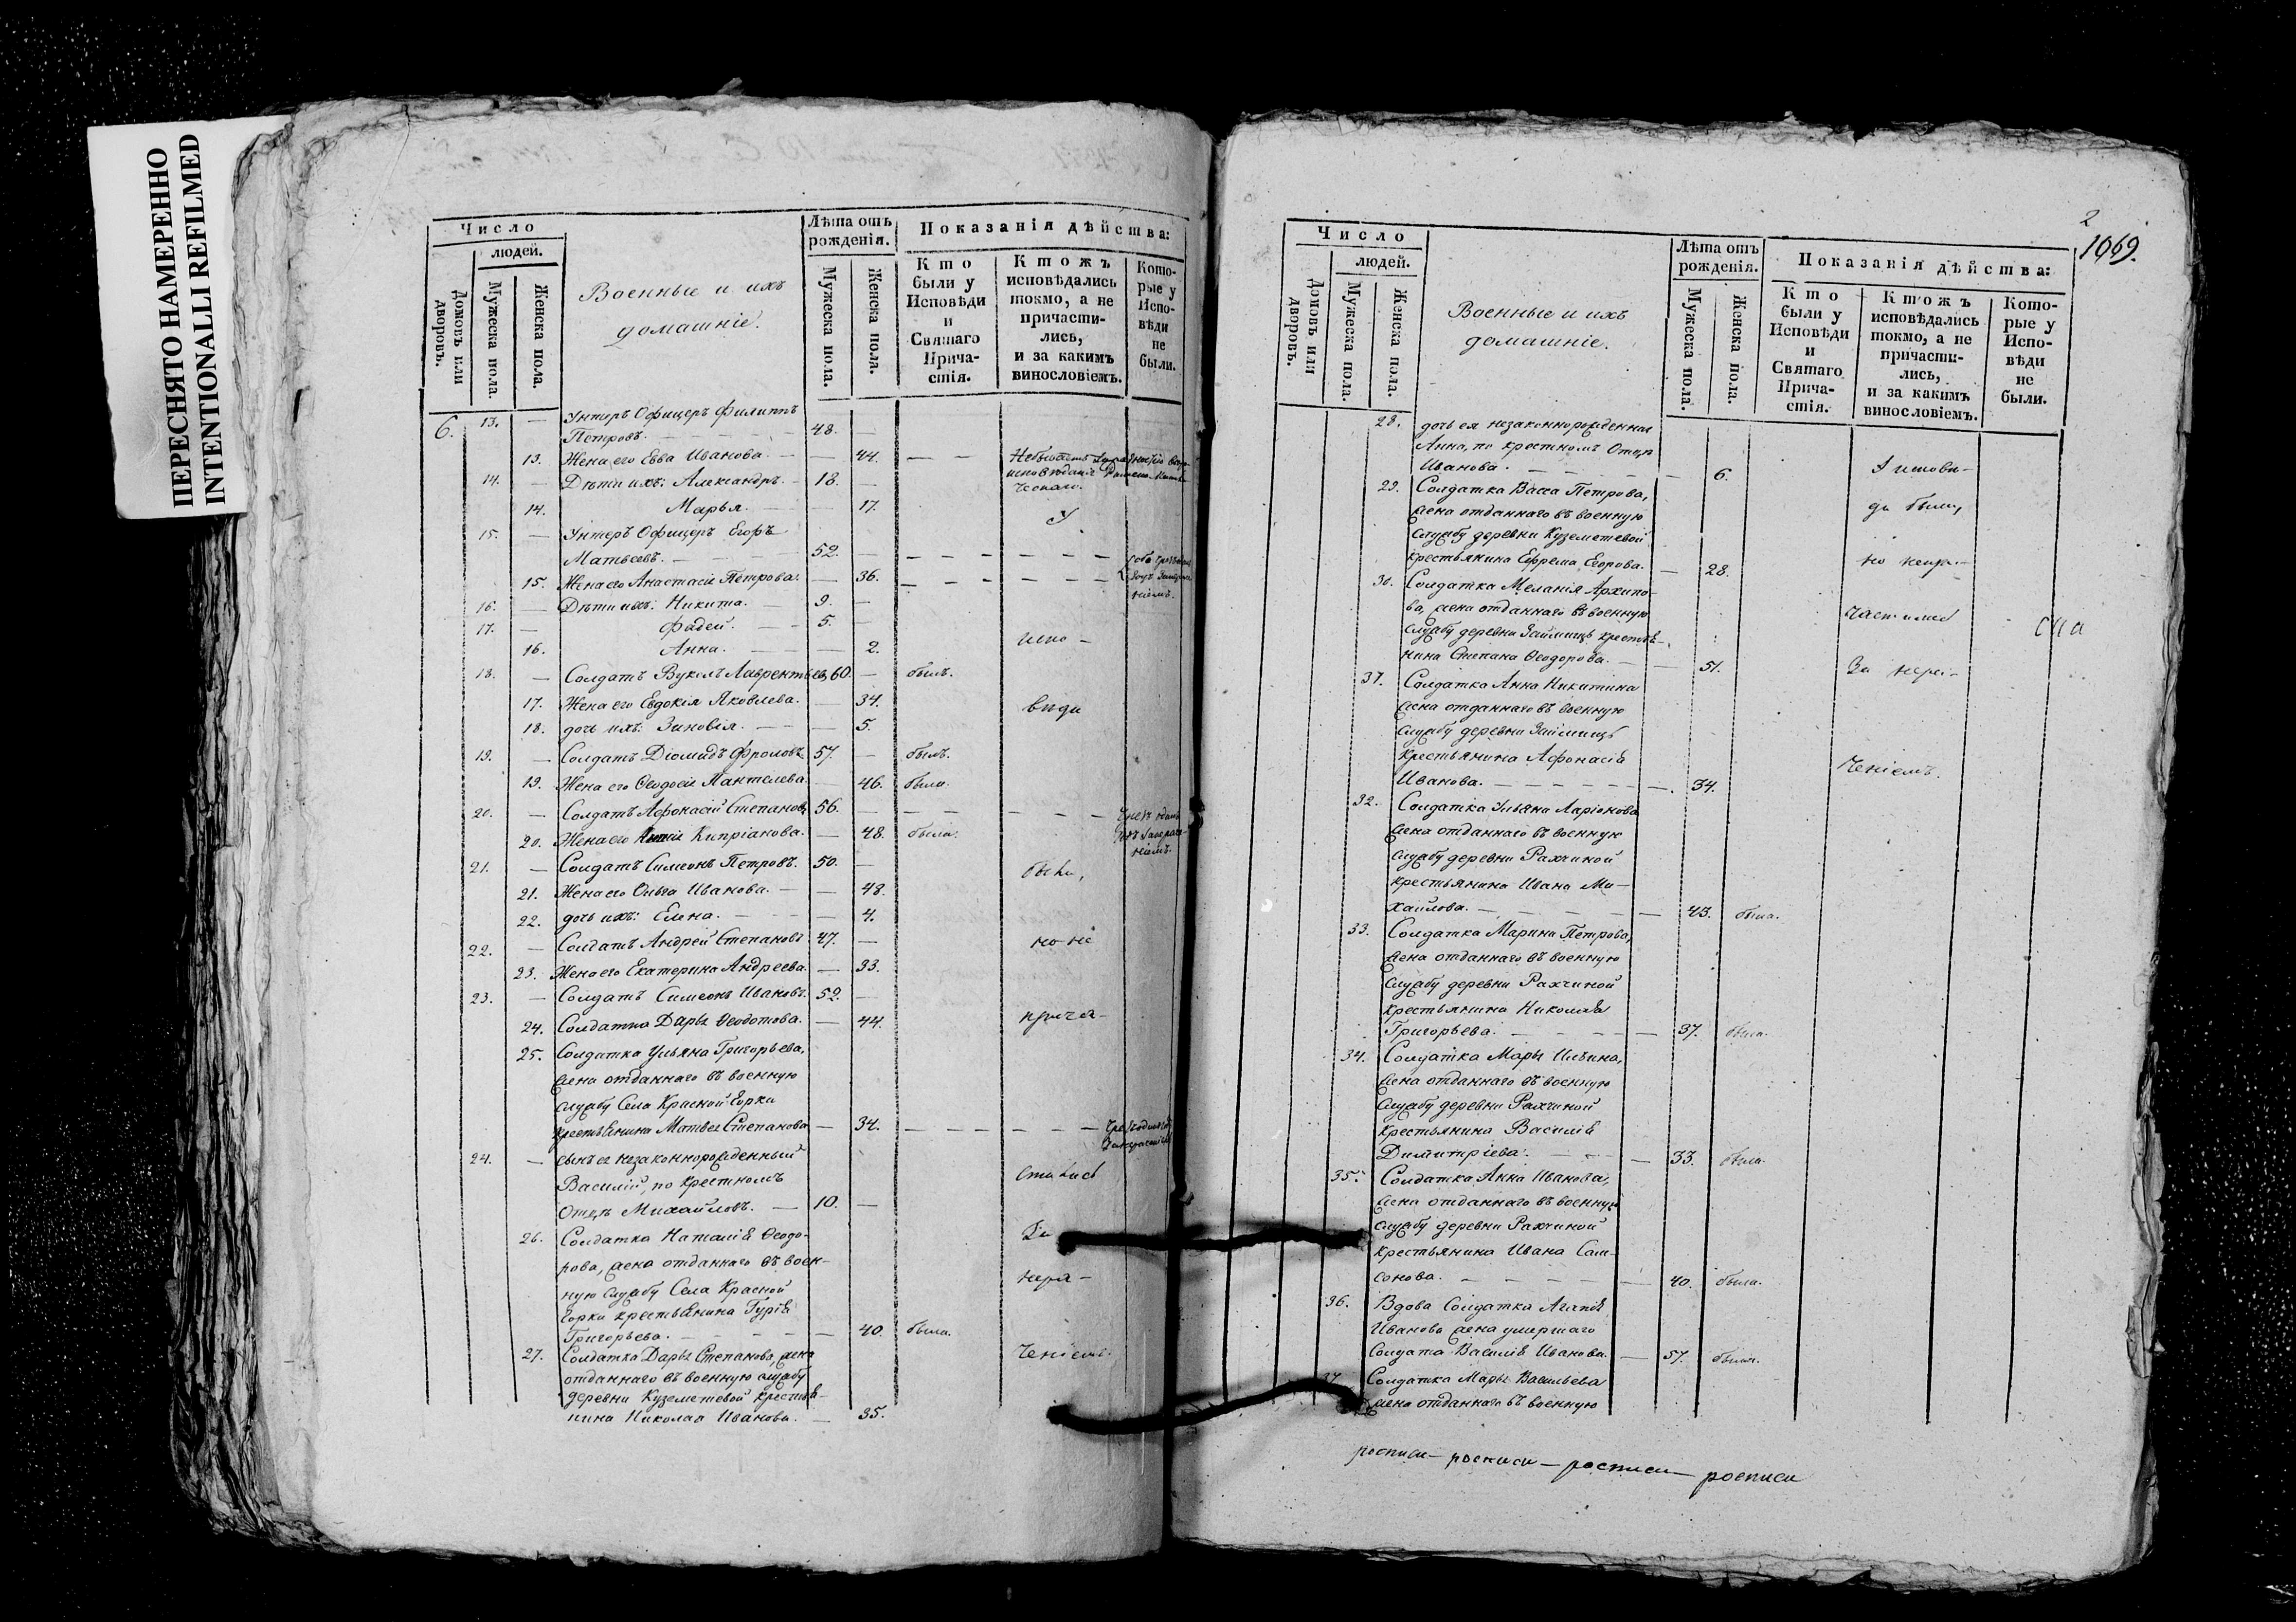 ПЕРЕСНЯТО НАМЕРЕННО
INTENTIONALLI REFILMED
Число
людей.
Домовъ или дворовъ.
Мужеска пола.
Женска пола.
Военные и ихъ
домашніе.
Лѣта отъ
рожденія.
Мужеска пола.
Женска пола.
Показанія дѣйства:
Кто
были у
Исповѣди
и
Святаго
Прича-
стія.
Ктожъ
исповѣдались
токмо, а не
причасти-
лись,
и за какимъ
винословіемъ.
Кото-
рые у
Испо-
вѣди
не
были.
6. 13. — Унтеръ Офицеръ Филиппъ
Петровъ. 48. —
13. Жена его Евва Иванова. — 44. — —
14. — Дѣти ихъ: Александръ. 18. —
14. Марья. — 17. У
15. — Унтеръ Офицеръ Егоръ
Матвеевъ. 52.
15. Жена его Анастасія Петрова. — 36.
16. — Дѣти ихъ: Никита. 9. —
17. — Фадей. 5.
16. Анна. — 2. испо-
18. — Солдатъ Вукулъ Лаврентьевъ, 60. — былъ.
17. Жена его Евдокія Яковлева. — 34. вѣди
18. дочь ихъ: Зиновія. — 5.
19. — Солдатъ Діомидъ Фроловъ. 57. — былъ.
19. Жена его Ѳеодосія Пантелева. — 46. была.
20. — Солдатъ Афонасій Степановъ, 56.
20. Жена его Кипріанова. — 48. была.
21. — Солдатъ Симеонъ Петровъ. 50. —
были,
21. Жена его Ольга Иванова. — 48.
22. дочь ихъ: Елена. — 4.
22. — Солдатъ Андрей Степановъ 47. — но не
23. Жена его Екатерина Андреева. — 33.
23. — Солдатъ Симеонъ Ивановъ. 52. —
24. Солдатка Дарья Ѳеодотова. — 44. прича-
25. Солдатка Ульяна Григорьева,
жена отданнаго въ военную
службу Села Красной Горки
крестьянина Матвея Степанова — 34.
24. — сынъ ея незаконнорожденный
Василій, по крестномъ
Отцѣ Михайловъ. — 10. —
стились
26. Солдатка Наталія Ѳеодо-
рова, жена отданнаго въ воен-
ную службу Села Красной
Горки крестьянина Гурія
Григорьева. — 40. была.
За
нера-
27. Солдатка Дарья Степанова, жена
отданнаго въ военную службу
деревни Куземетевой крестья-
нина Николая Иванова. — 35.
ченіемъ.
2
1969.
Число
людей.
Домовъ или дворовъ.
Мужеска пола.
Женска пола.
Военные и ихъ
домашніе.
Лѣта отъ
рожденія.
Мужеска пола.
Женска пола.
Показанія дѣйства:
Кто
были у
Исповѣди
и
Святаго
Прича-
стія.
Ктожъ
исповѣдались
токмо, а не
причасти-
лись,
и за какимъ
винословіемъ.
Кото-
рые у
Испо-
вѣди
не
были.
28. дочь ея незаконнорожденная
Анна, по крестномъ Отцѣ
Иванова. — 6. У исповѣ-
29. Солдатка Васса Петрова,
жена отданнаго въ военную ди были,
службу деревни Куземетевой
крестьянина Ефрема Егорова. — 28. но непри-
30. Солдатка Меланія Архипо-
ва, жена отданнаго въ военную частились
службу деревни Займищъ крестья-
нина Степана Ѳеодорова. — 51. За нера-
31. Солдатка Анна Никитина
жена отданнаго въ военную
службу деревни Займищъ
крестьянина Афонасія ченіемъ.
Иванова. — 34.
32. Солдатка Ульяна Ларіонова
жена отданнаго въ военную
службу деревни Рахчиной
крестьянина Ивана Ми-
хайлова. — 43. была.
33. Солдатка Марина Петрова,
жена отданнаго въ военную
службу деревни Рахчиной
крестьянина Николая
Григорьева. — 37. была.
34. Солдатка Марья Ильина,
жена отданнаго въ военную
службу деревни Рахчиной
крестьянина Василія
Димитріева. — 33. была.
35. Солдатка Анна Иванова,
жена отданнаго въ военную
службу деревни Рахчиной
крестьянина Ивана Сам-
сонова. — 40. была.
36. Вдова Солдатка Агапія
Иванова жена умершаго
Солдата Василія Иванова. — 57. была.
37. Солдатка Марья Васильева
жена отданнаго въ военную
росписи — росписи — росписи — росписи